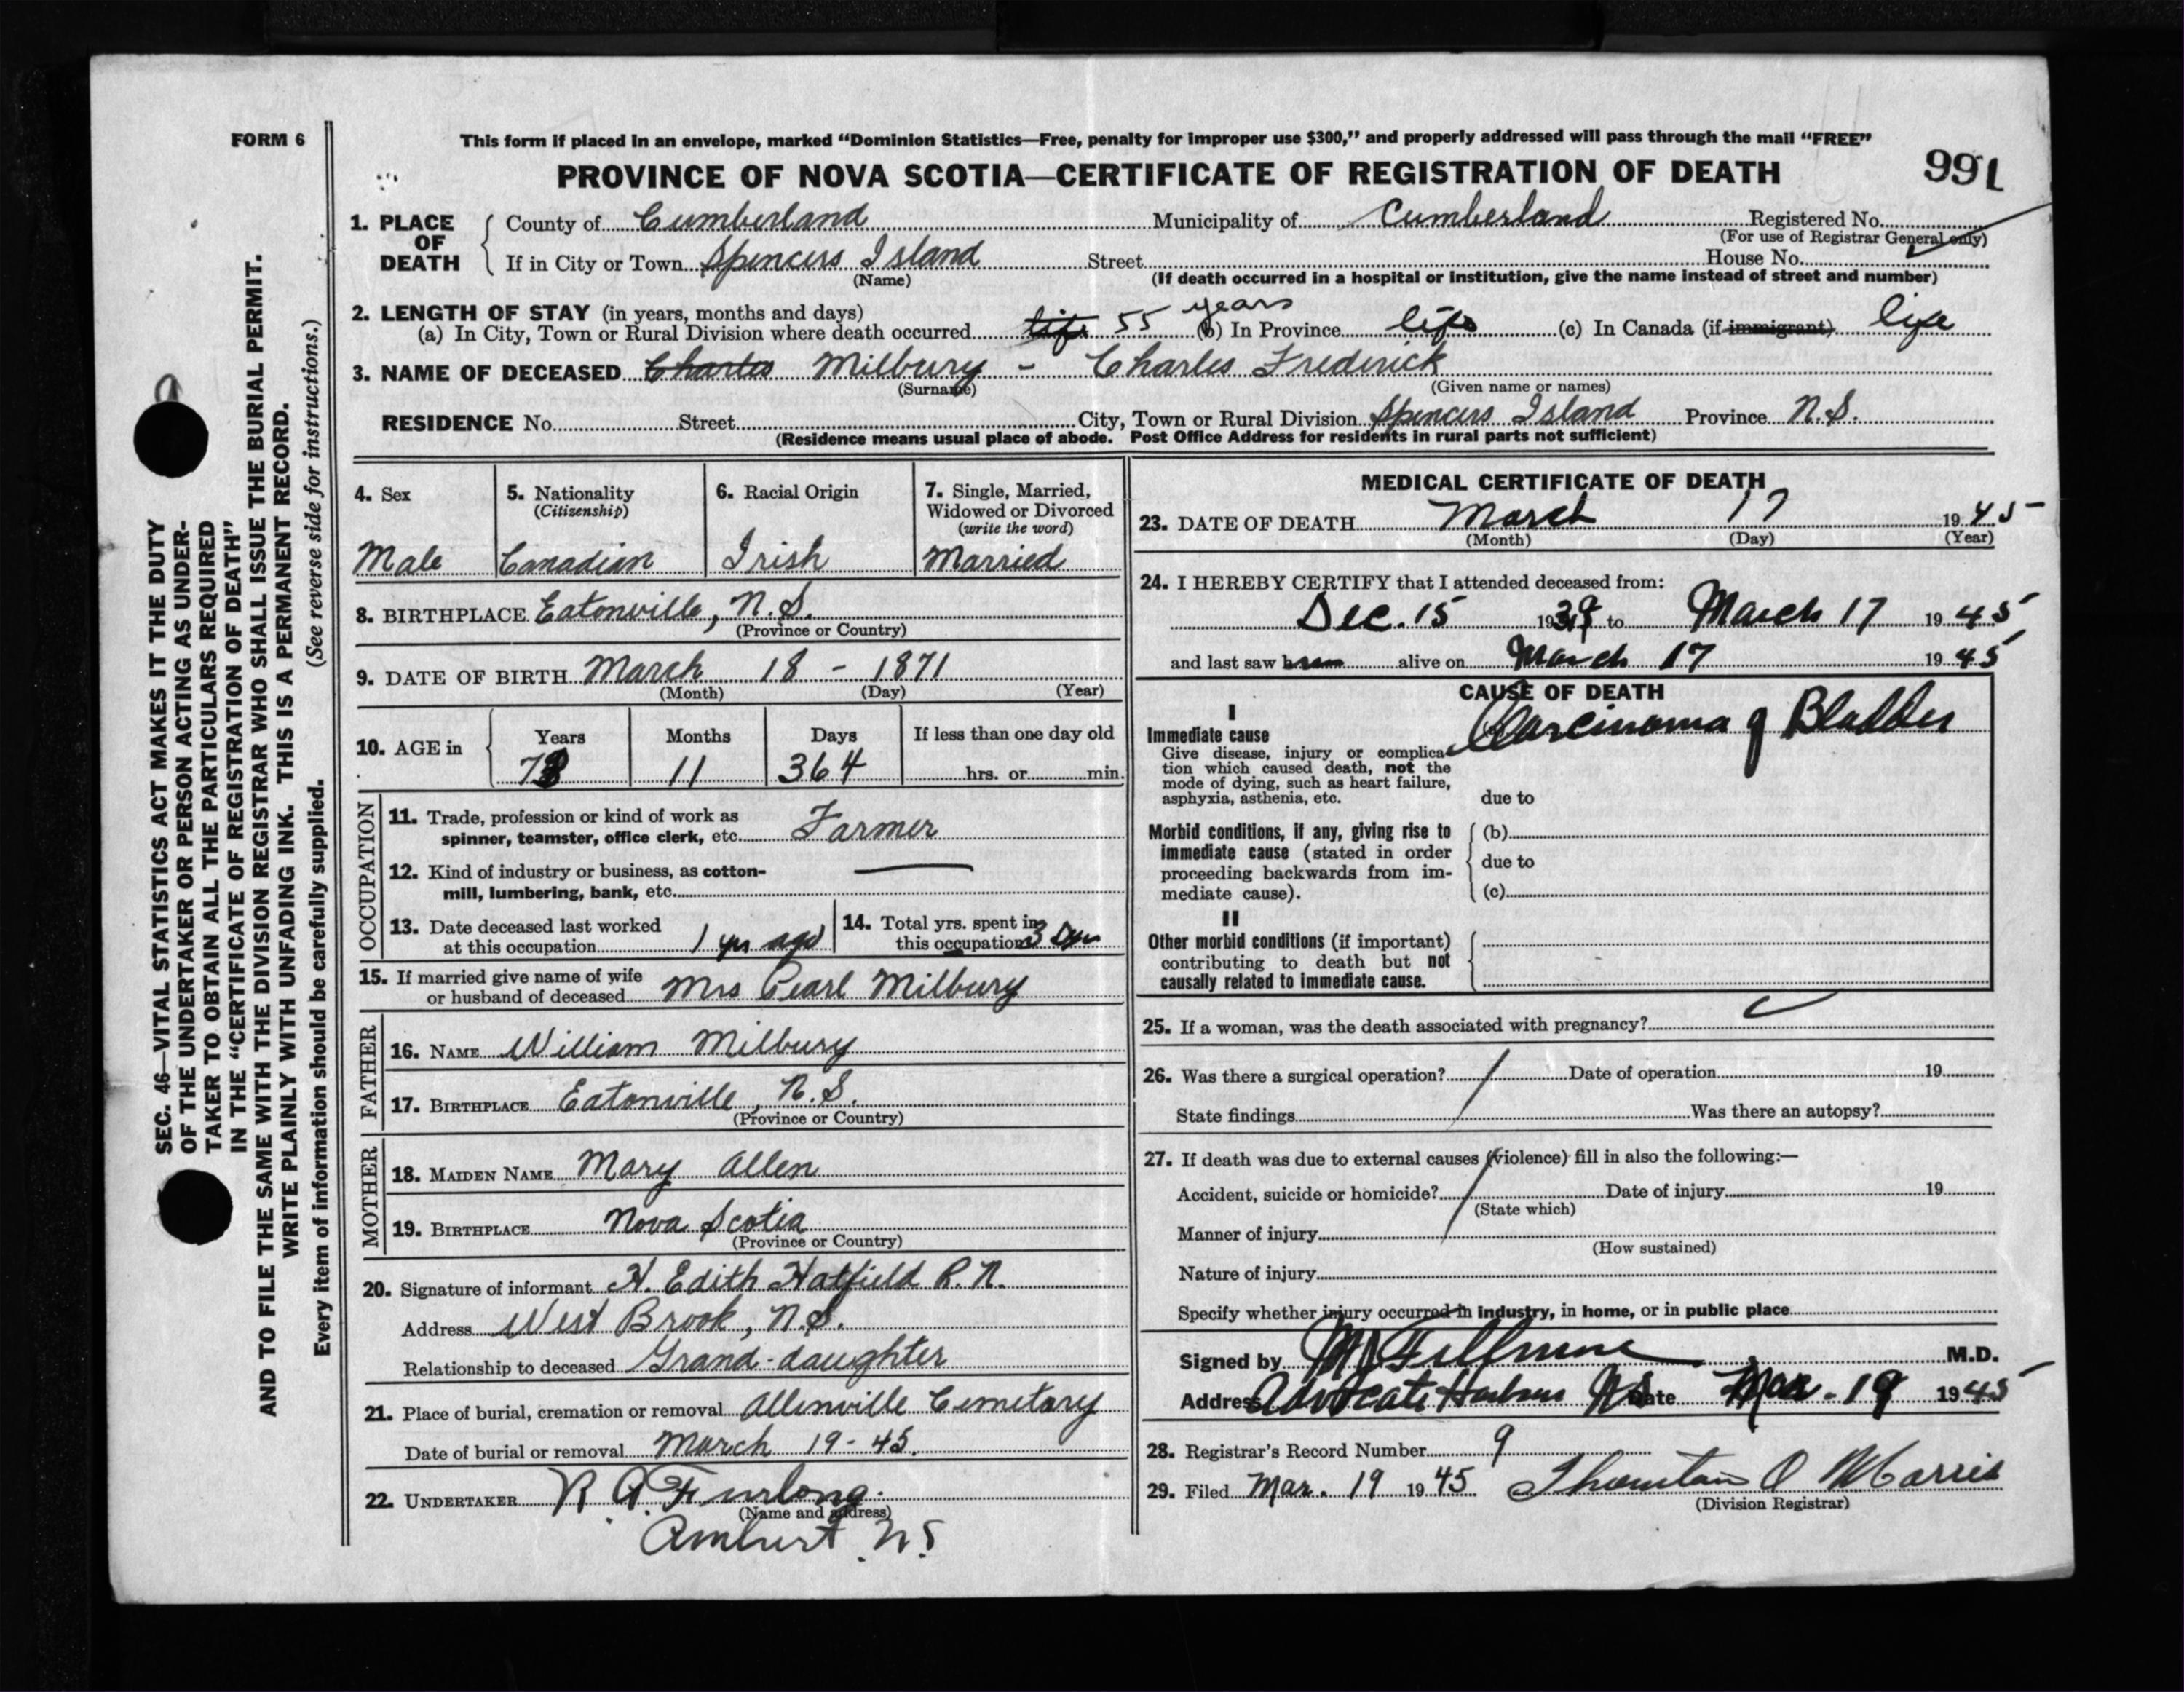 FORM 6
This form if placed in an envelope, marked “Dominion Statistics—Free, penalty for improper use $300,” and properly addressed will pass through the mail “FREE”
PROVINCE OF NOVA SCOTIA—CERTIFICATE OF REGISTRATION OF DEATH
991
1. PLACE OF DEATH { County of Cumberland Municipality of Cumberland Registered No.
(For use of Registrar General only)
If in City or Town Spencers Island Street House No.
(Name) (If death occurred in a hospital or institution, give the name instead of street and number)
2. LENGTH OF STAY (in years, months and days)
(a) In City, Town or Rural Division where death occurred life 55 years (b) In Province life (c) In Canada (if immigrant) life
3. NAME OF DECEASED Charles Milbury - Charles Frederick
(Surname) (Given name or names)
RESIDENCE No. Street City, Town or Rural Division Spencers Island Province N.S.
(Residence means usual place of abode. Post Office Address for residents in rural parts not sufficient)
4. Sex
Male
5. Nationality
(Citizenship)
Canadian
6. Racial Origin
Irish
7. Single, Married,
Widowed or Divorced
(write the word)
Married
8. BIRTHPLACE Eatonville, N.S.
(Province or Country)
9. DATE OF BIRTH March 18 - 1871
(Month) (Day) (Year)
10. AGE in { Years Months Days If less than one day old
73 11 364 hrs. or min.
OCCUPATION
11. Trade, profession or kind of work as
spinner, teamster, office clerk, etc. Farmer
12. Kind of industry or business, as cotton-
mill, lumbering, bank, etc.
13. Date deceased last worked
at this occupation 1 yr ago
14. Total yrs. spent in
this occupation
15. If married give name of wife
or husband of deceased Mrs Pearl Milbury
FATHER
16. NAME William Milbury
17. BIRTHPLACE Eatonville, N.S.
(Province or Country)
MOTHER
18. MAIDEN NAME Mary Allen
19. BIRTHPLACE Nova Scotia
(Province or Country)
20. Signature of informant H. Edith Hatfield R.N.
Address West Brook, N.S.
Relationship to deceased Grand-daughter
21. Place of burial, cremation or removal Allenville Cemetary
Date of burial or removal March 19-45.
22. UNDERTAKER R. A. Furlong.
(Name and address)
Amherst. N.S
MEDICAL CERTIFICATE OF DEATH
23. DATE OF DEATH March 17 1945
(Month) (Day) (Year)
24. I HEREBY CERTIFY that I attended deceased from:
Dec. 15 1939 to March 17 1945
and last saw him alive on March 17 1945
CAUSE OF DEATH
I
Immediate cause Carcinoma of Bladder
Give disease, injury or complica-
tion which caused death, not the
mode of dying, such as heart failure,
asphyxia, asthenia, etc.
due to
Morbid conditions, if any, giving rise to
immediate cause (stated in order
proceeding backwards from im-
mediate cause).
(b)
due to
(c)
II
Other morbid conditions (if important)
contributing to death but not
causally related to immediate cause.
25. If a woman, was the death associated with pregnancy?
26. Was there a surgical operation? Date of operation 19
State findings Was there an autopsy?
27. If death was due to external causes (violence) fill in also the following:—
Accident, suicide or homicide? Date of injury 19
(State which)
Manner of injury
(How sustained)
Nature of injury
Specify whether injury occurred in industry, in home, or in public place
Signed by Fillmore M.D.
Address Advocate Harbour NS Date Mar. 19 1945
28. Registrar's Record Number 9
29. Filed Mar. 19 1945 Thornton O Morris
(Division Registrar)
SEC. 46—VITAL STATISTICS ACT MAKES IT THE DUTY
OF THE UNDERTAKER OR PERSON ACTING AS UNDER-
TAKER TO OBTAIN ALL THE PARTICULARS REQUIRED
IN THE “CERTIFICATE OF REGISTRATION OF DEATH”
AND TO FILE THE SAME WITH THE DIVISION REGISTRAR WHO SHALL ISSUE THE BURIAL PERMIT.
WRITE PLAINLY WITH UNFADING INK. THIS IS A PERMANENT RECORD.
Every item of information should be carefully supplied. (See reverse side for instructions.)